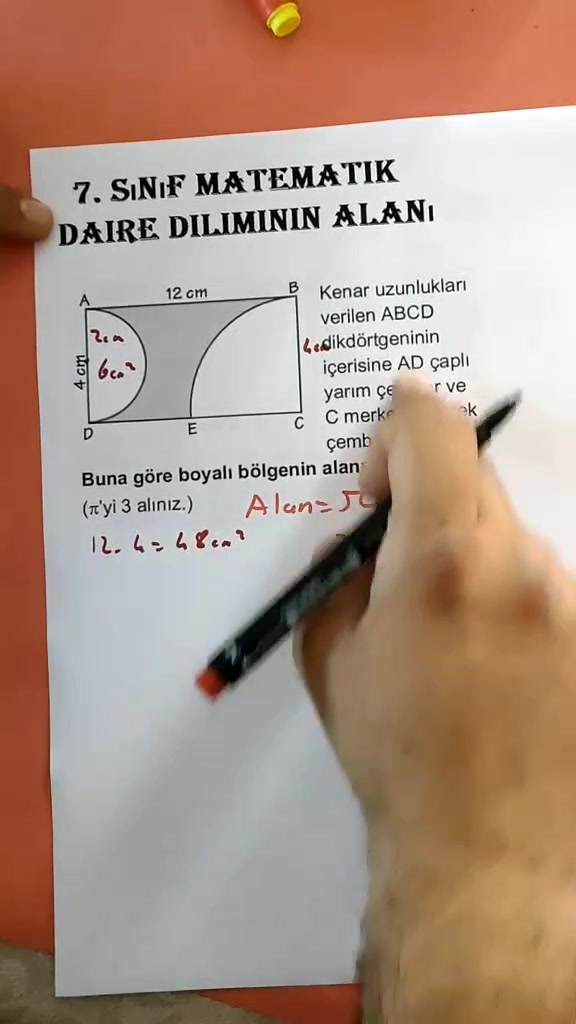 7. SINIF MATEMATIK
DAIRE DILIMININ ALANI
A
12 cm
B
2cm
6cm²
4 cm
4cm
D
E
C
Kenar uzunlukları
verilen ABCD
dikdörtgeninin
içerisine AD çaplı
yarım ve
C
Buna göre boyalı bölgenin
(π'yi 3 alınız.)
Alan =
12. 4 = 48cm²